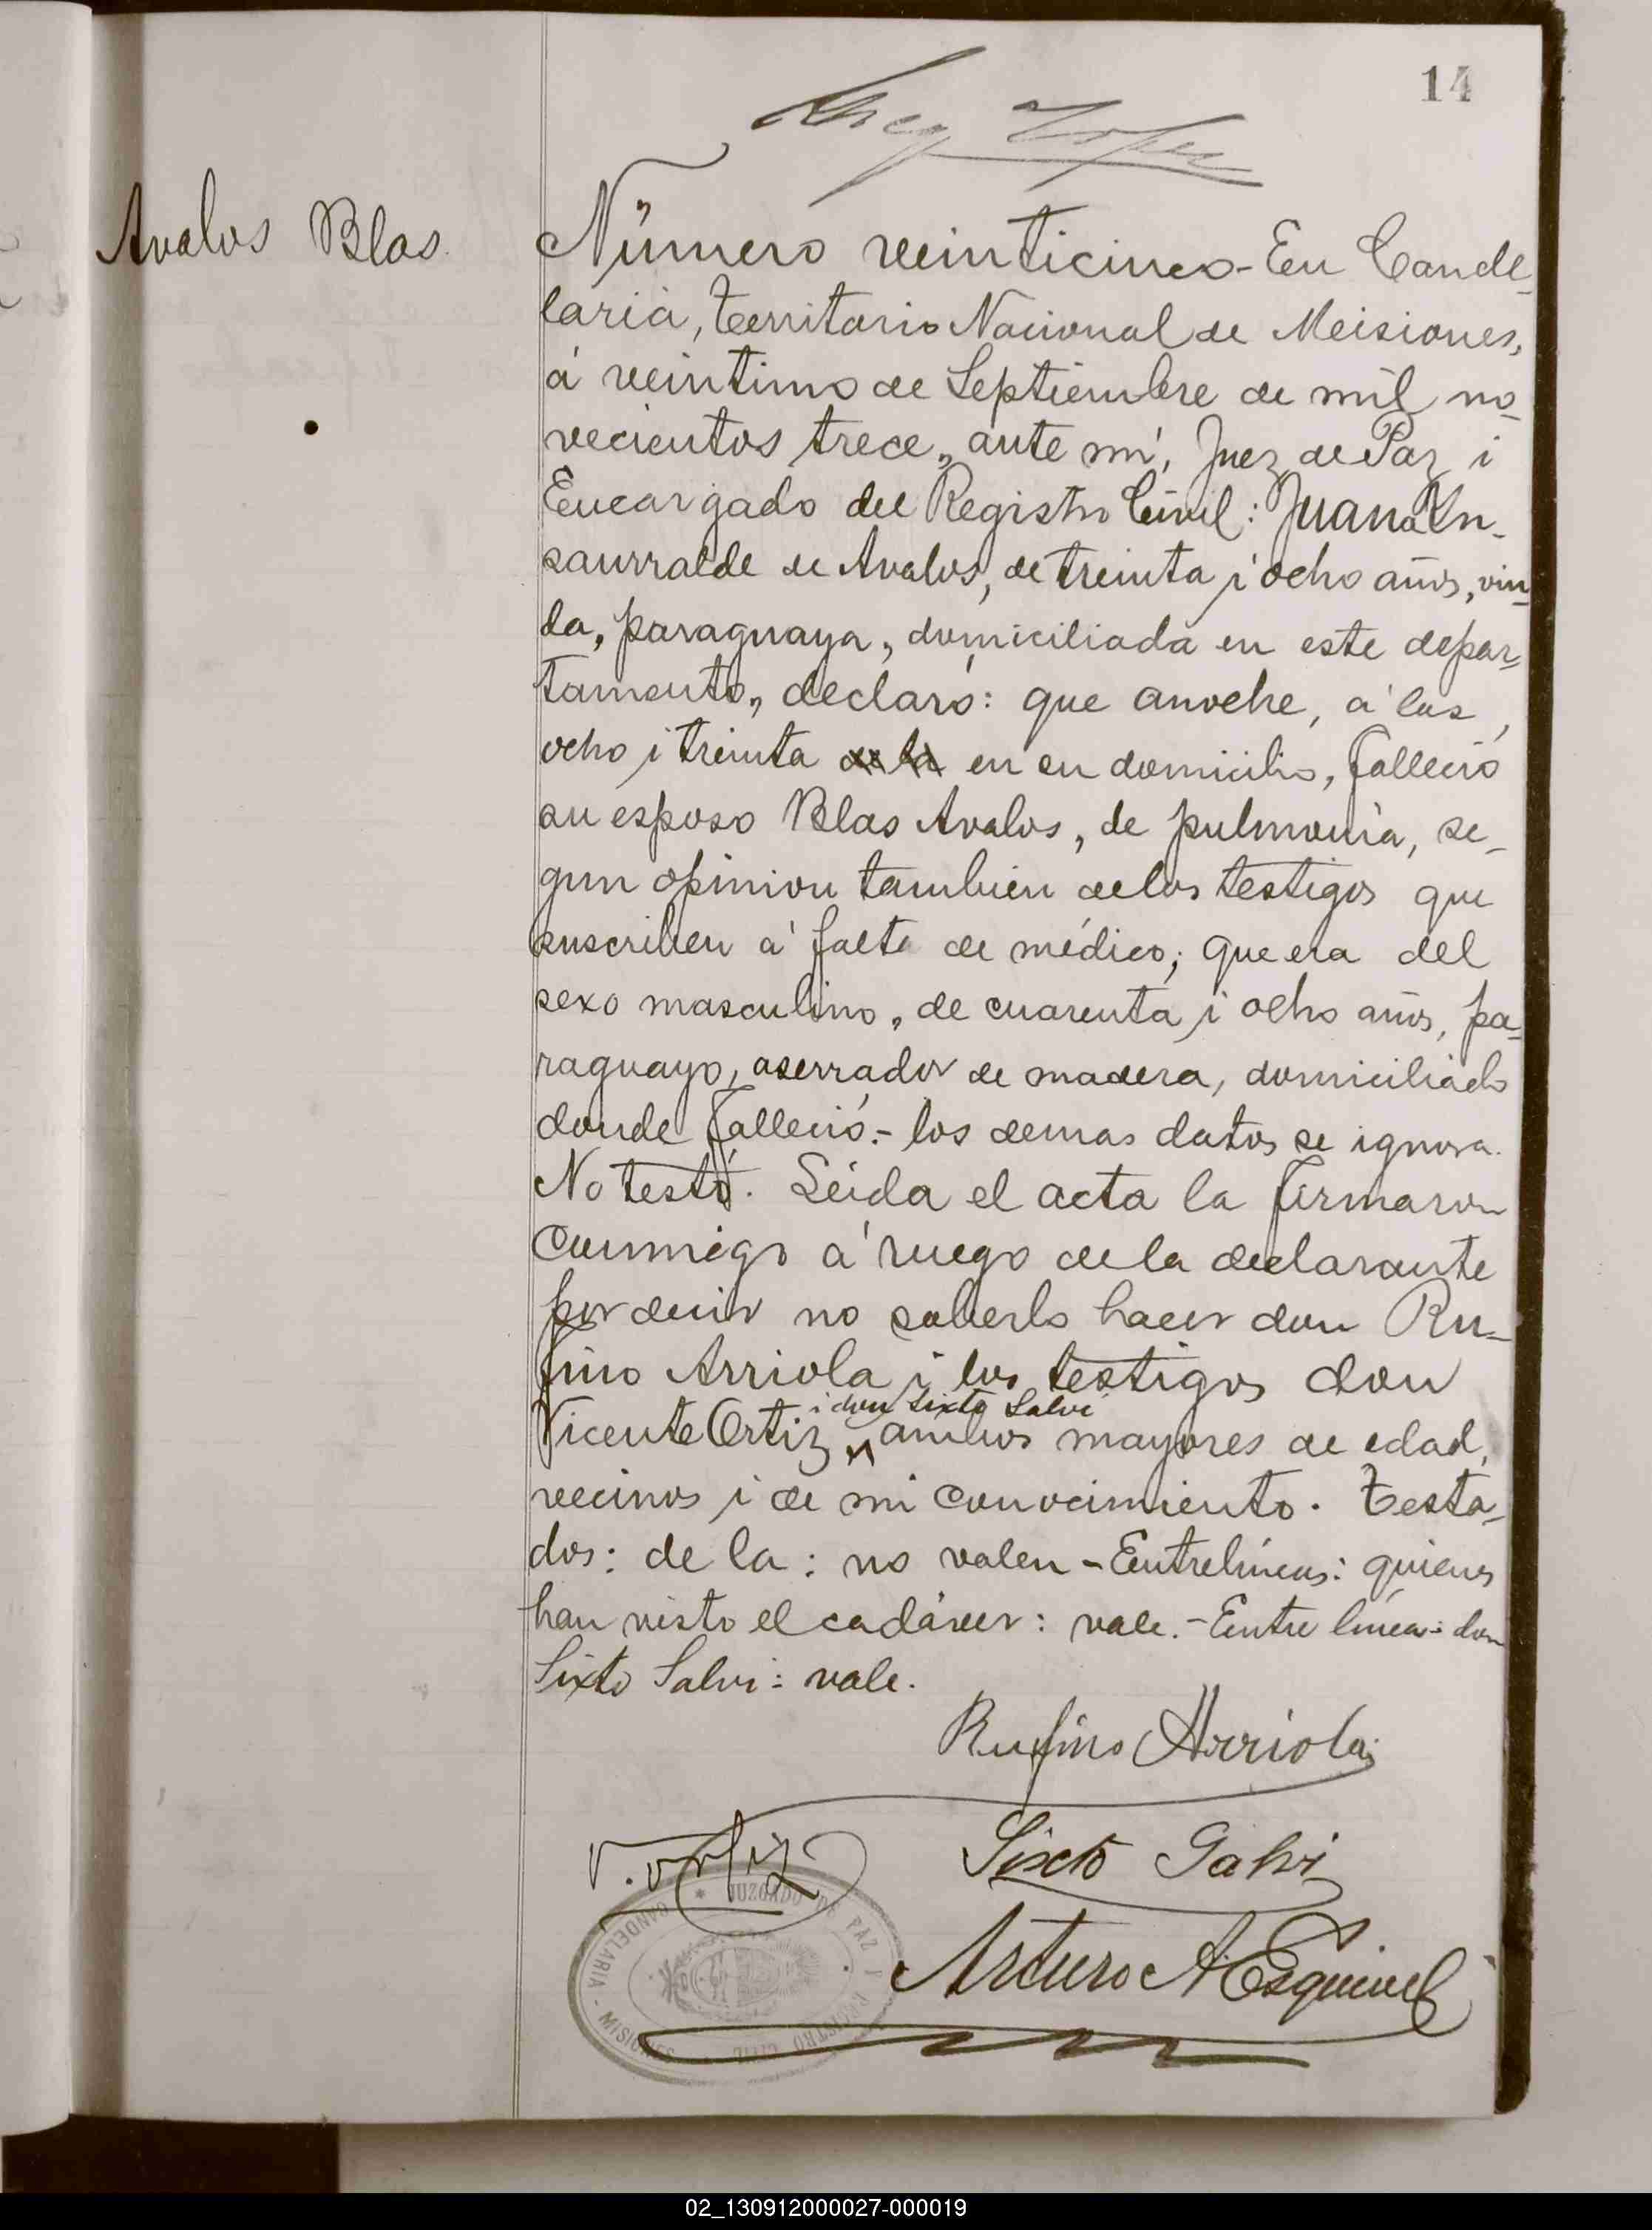 14
Avalos Blas.
Número veinticinco - En Cande-
laria, territorio Nacional de Misiones,
á veintiuno de Septiembre de mil no-
vecientos trece, ante mí, Juez de Paz i
Encargado del Registro Civil: Juana In-
saurralde de Avalos, de treinta i ocho años, viu-
da, paraguaya, domiciliada en este depar-
tamento, declaró: que anoche, á las
ocho i treinta de la en su domicilio, falleció
su esposo Blas Avalos, de pulmonía, se-
gun opinion tambien de los testigos que
suscriben á falta de médico; que era del
sexo masculino, de cuarenta i ocho años, pa-
raguayo, aserrador de madera, domiciliado
donde falleció.- los demas datos se ignora.
No testó. Leida el acta la firmaron
conmigo á ruego de la declarante
por decir no saberlo hacer don Ru-
fino Arriola i los testigos don
i don Sixto Salvi
Vicente Ortiz ambos mayores de edad,
vecinos i de mi conocimiento. Testa-
dos: de la: no valen - Entrelíneas: quienes
han visto el cadáver: vale.- Entre línea: don
Sixto Salvi: vale.
Rufino Arriola
V. Ortiz
Sixto Salvi
Arturo A Esquivel
JUZGADO DE PAZ I REGISTRO CIVIL
CANDELARIA - MISIONES
02_130912000027-000019